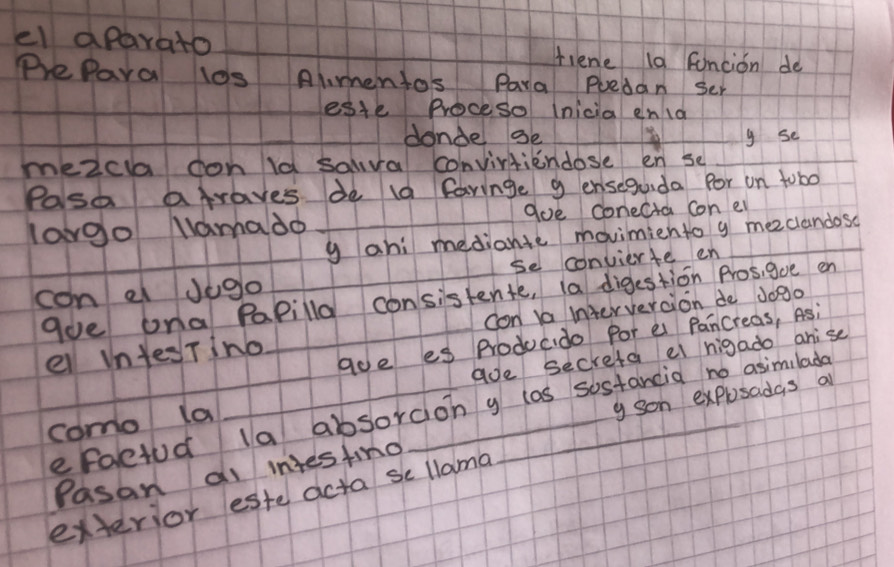 el aParato ____________ tiene la función de
PrePara los Alimentos Para Puedan ser
____________ este Proceso inicia en la
____________ donde se ____________ y se
mezcla con la saliva convirtiéndose en se ____________
Pasa a traves de la faringe y enseguida Por un tubo
largo llamado ____________ que conecta con el
____________ y ahi mediante movimiento y mezclandose
con el Jugo ____________ se convierte en
que una PaPilla consistente, la digestión Prosigue en
el intesTino ____________ con la intervención de Jogo
____________ que es Producido Por el Páncreas, Asi
como la ____________ que secreta el higado ahi se
efactud la absorción y las sustancia no asimilada
Pasan al intestino ____________ y son expusadas al
exterior este acta se llama ____________